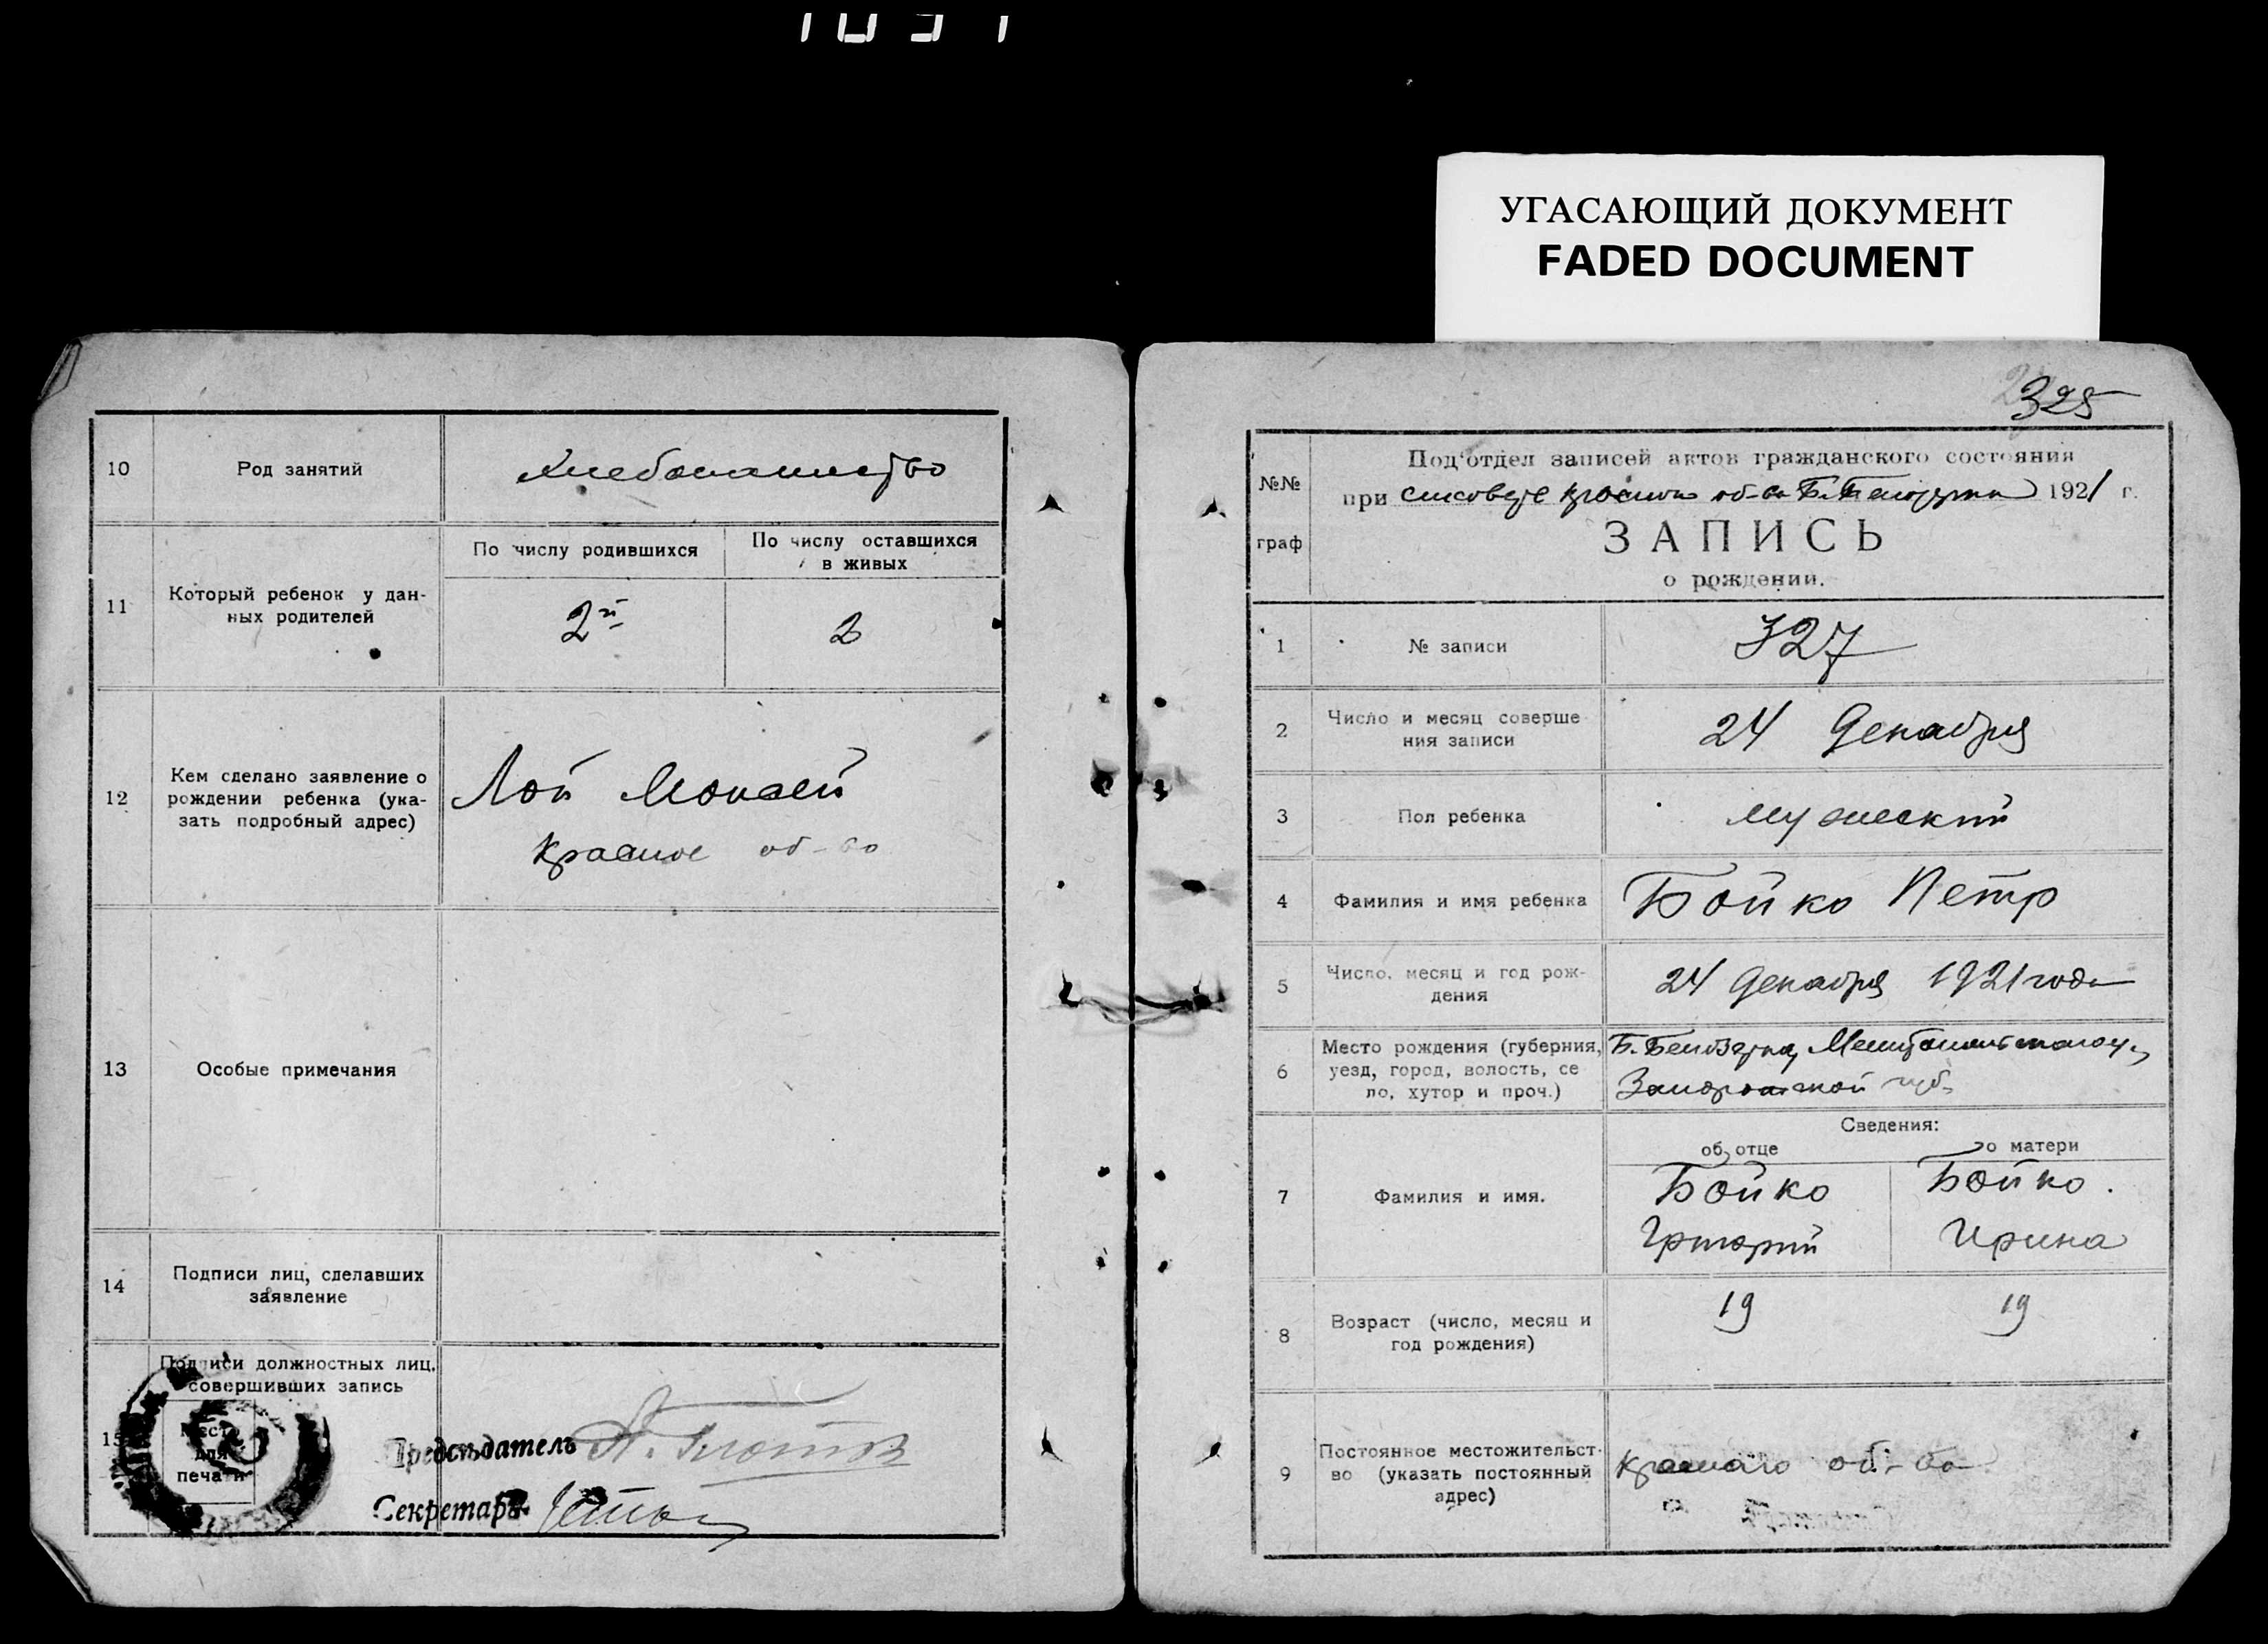 УГАСАЮЩИЙ ДОКУМЕНТ
FADED DOCUMENT
10
Род занятий
Хлебопашество
11
Который ребенок у дан-
ных родителей
По числу родившихся
По числу оставшихся
в живых
2й
2
12
Кем сделано заявление о
рождении ребенка (ука-
зать подробный адрес)
Лой Моисей
Красное об-во
13
Особые примечания
14
Подписи лиц, сделавших
заявление
15
Подписи должностных лиц,
совершивших запись
Место
для
печати
Председатель
Секретарь
325
№№
граф
Под'отдел записей актов гражданского состояния
при об-ва Б. Белозерка 1921 г.
ЗАПИСЬ
о рождении.
1
№ записи
327
2
Число и месяц соверше
ния записи
24 Декабря
3
Пол ребенка
мужеский
4
Фамилия и имя ребенка
Бойко Петр
5
Число, месяц и год рож-
дения
24 Декабря 1921 года
6
Место рождения (губерния,
уезд, город, волость, се
ло, хутор и проч.)
Б. Белозерка, Мелитопольского у.,
Запорожской губ.
Сведения:
об отце
о матери
7
Фамилия и имя.
Бойко
Григорий
Бойко.
Ирина
8
Возраст (число, месяц и
год рождения)
19
19
9
Постоянное местожительст-
во (указать постоянный
адрес)
Краснаго об-ва